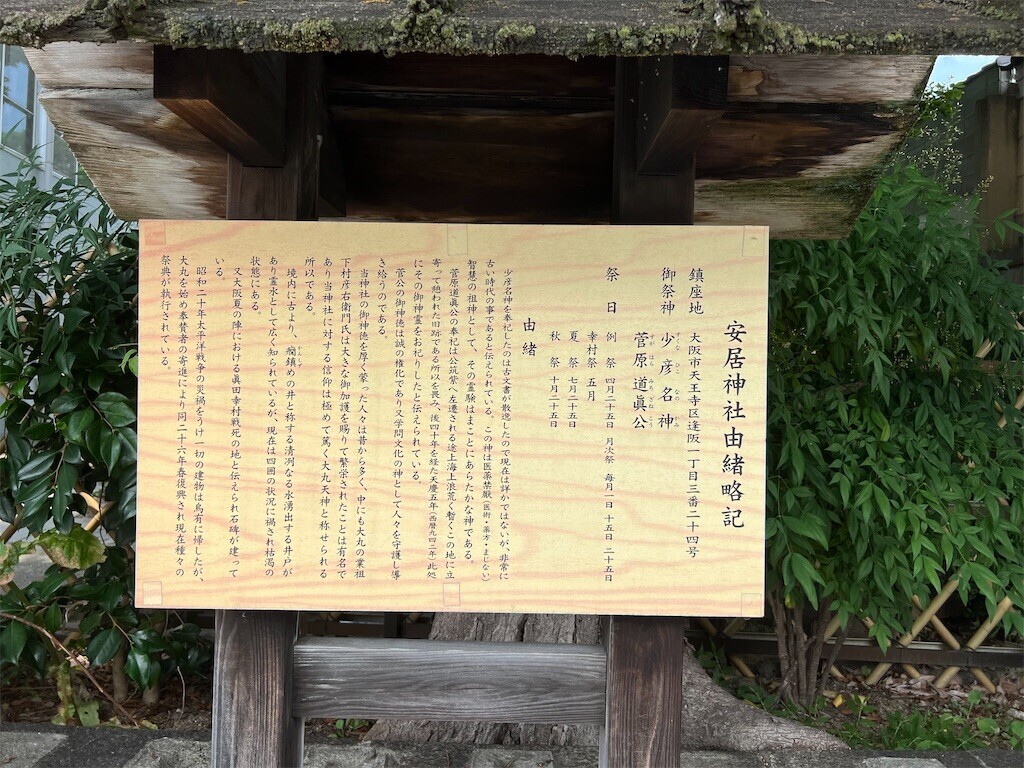 安居神社由緒略記
鎮座地 大阪市天王寺区逢阪一丁目三番二十四号
御祭神 少彦名神
すくなひこなのかみ
菅原道眞公
すがはらみちざねこう
祭日 例祭 四月二十五日 月次祭 毎月一日 十五日 二十五日
幸村祭 五月
夏祭 七月二十五日
秋祭 十月二十五日
由緒
少彦名神を奉祀したのは古文書が散逸したので現在は詳かではないが、非常に
古い時代の事であると伝えられている。この神は医薬禁厭(医術・薬方・まじない)
智慧の祖神として、その霊験はまことにあらたかな神である。
菅原道眞公の奉祀は公筑紫へ左遷される途上海上浪荒く暫くこの地に立
寄って憩われた旧跡である所以を畏み、後四十年を経た天慶五年(西暦九四二年)此処
にその御神霊をお祀りしたと伝えられている。
菅公の御神徳は誠の権化であり又学問文化の神として人々を守護し導
き給うのである。
当神社の御神徳を厚く蒙った人々は昔から多く、中にも大丸の業祖
下村彦右衛門氏は大きな御加護を賜りて繁栄されたことは有名で
あり当神社に対する信仰は極めて篤く大丸天神と称せられる
所以である。
境内に古より、癇鎮めの井と称する清冽なる水湧出する井戸が
かんしずめ
あり霊水として広く知られているが、現在は四囲の状況に禍され枯渇の
状態にある。
又大阪夏の陣における眞田幸村戦死の地と伝えられ石碑が建って
いる。
昭和二十年太平洋戦争の災禍をうけ一切の建物は烏有に帰したが、
大丸を始め奉賛者の寄進により同二十六年春復興され現在種々の
祭典が執行されている。